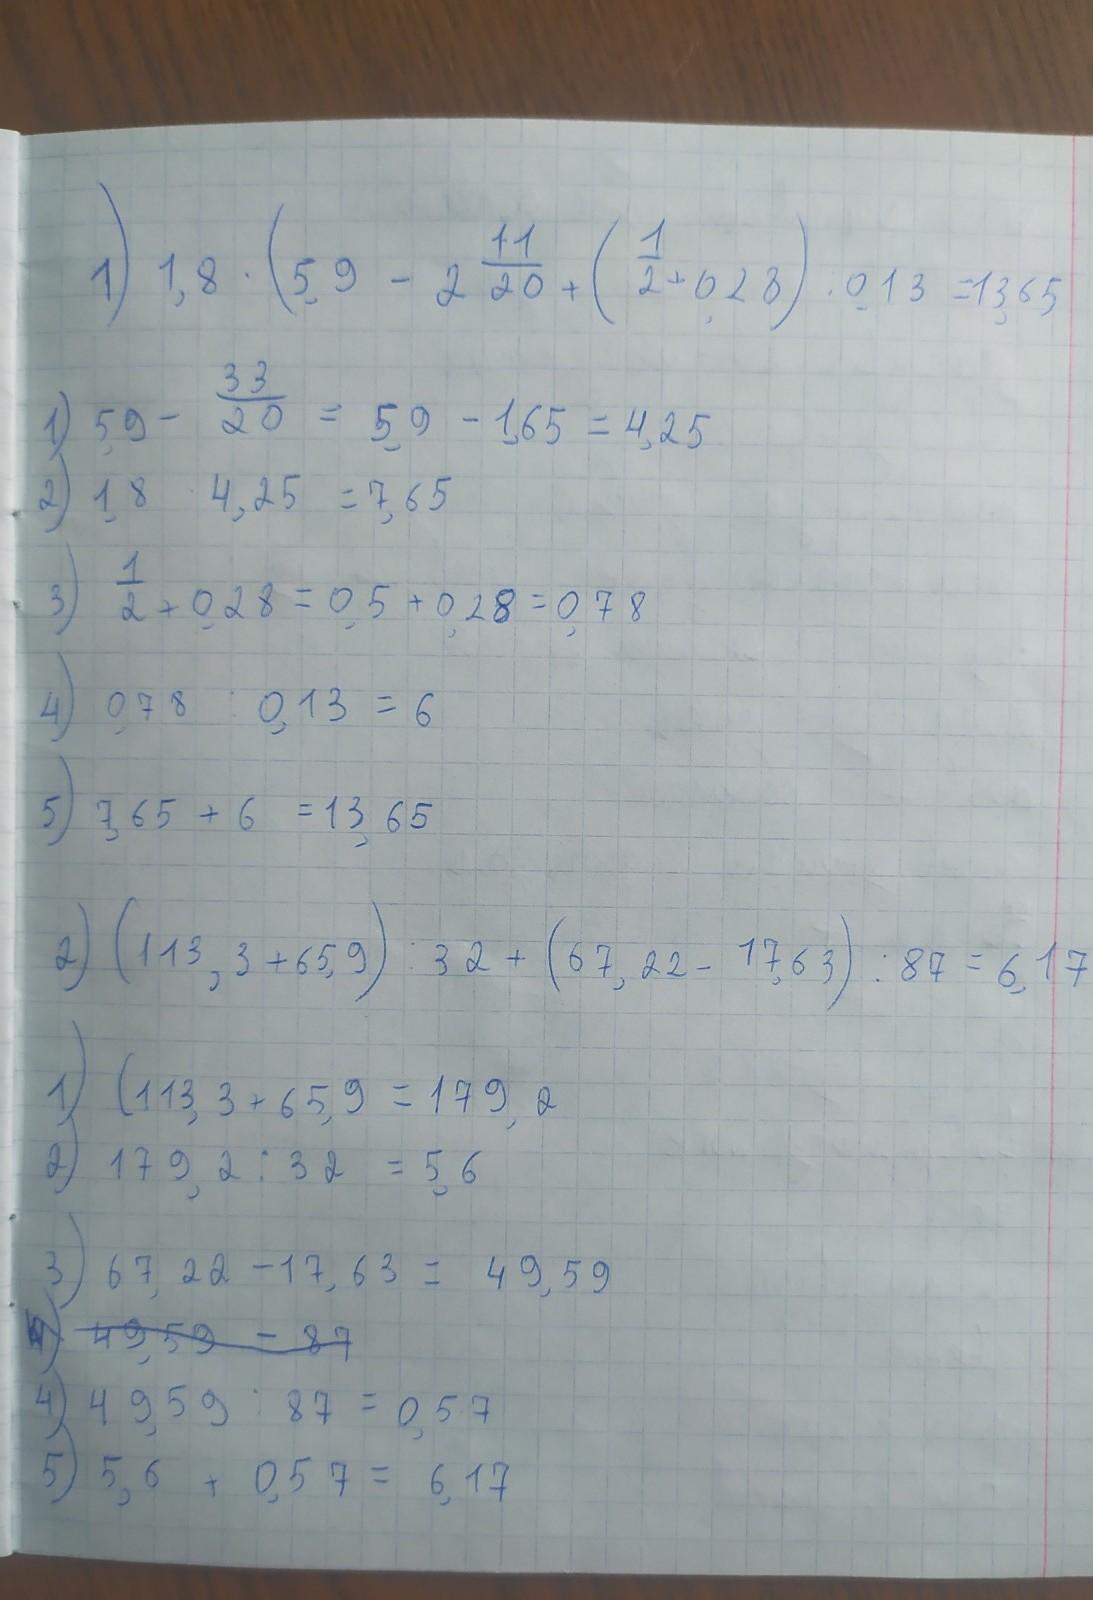 1) 1,8 · (5,9 - 2 11/20 + (1/2 + 0,28) : 0,13 = 13,65
1) 5,9 - 33/20 = 5,9 - 1,65 = 4,25
2) 1,8 4,25 = 7,65
3) 1/2 + 0,28 = 0,5 + 0,28 = 0,78
4) 0,78 : 0,13 = 6
5) 7,65 + 6 = 13,65
2) (113,3 + 65,9) : 32 + (67,22 - 17,63) : 87 = 6,17
1) (113,3 + 65,9 = 179,2
2) 179,2 : 32 = 5,6
3) 67,22 - 17,63 = 49,59
4) 49,59 - 87
4) 49,59 : 87 = 0,57
5) 5,6 + 0,57 = 6,17